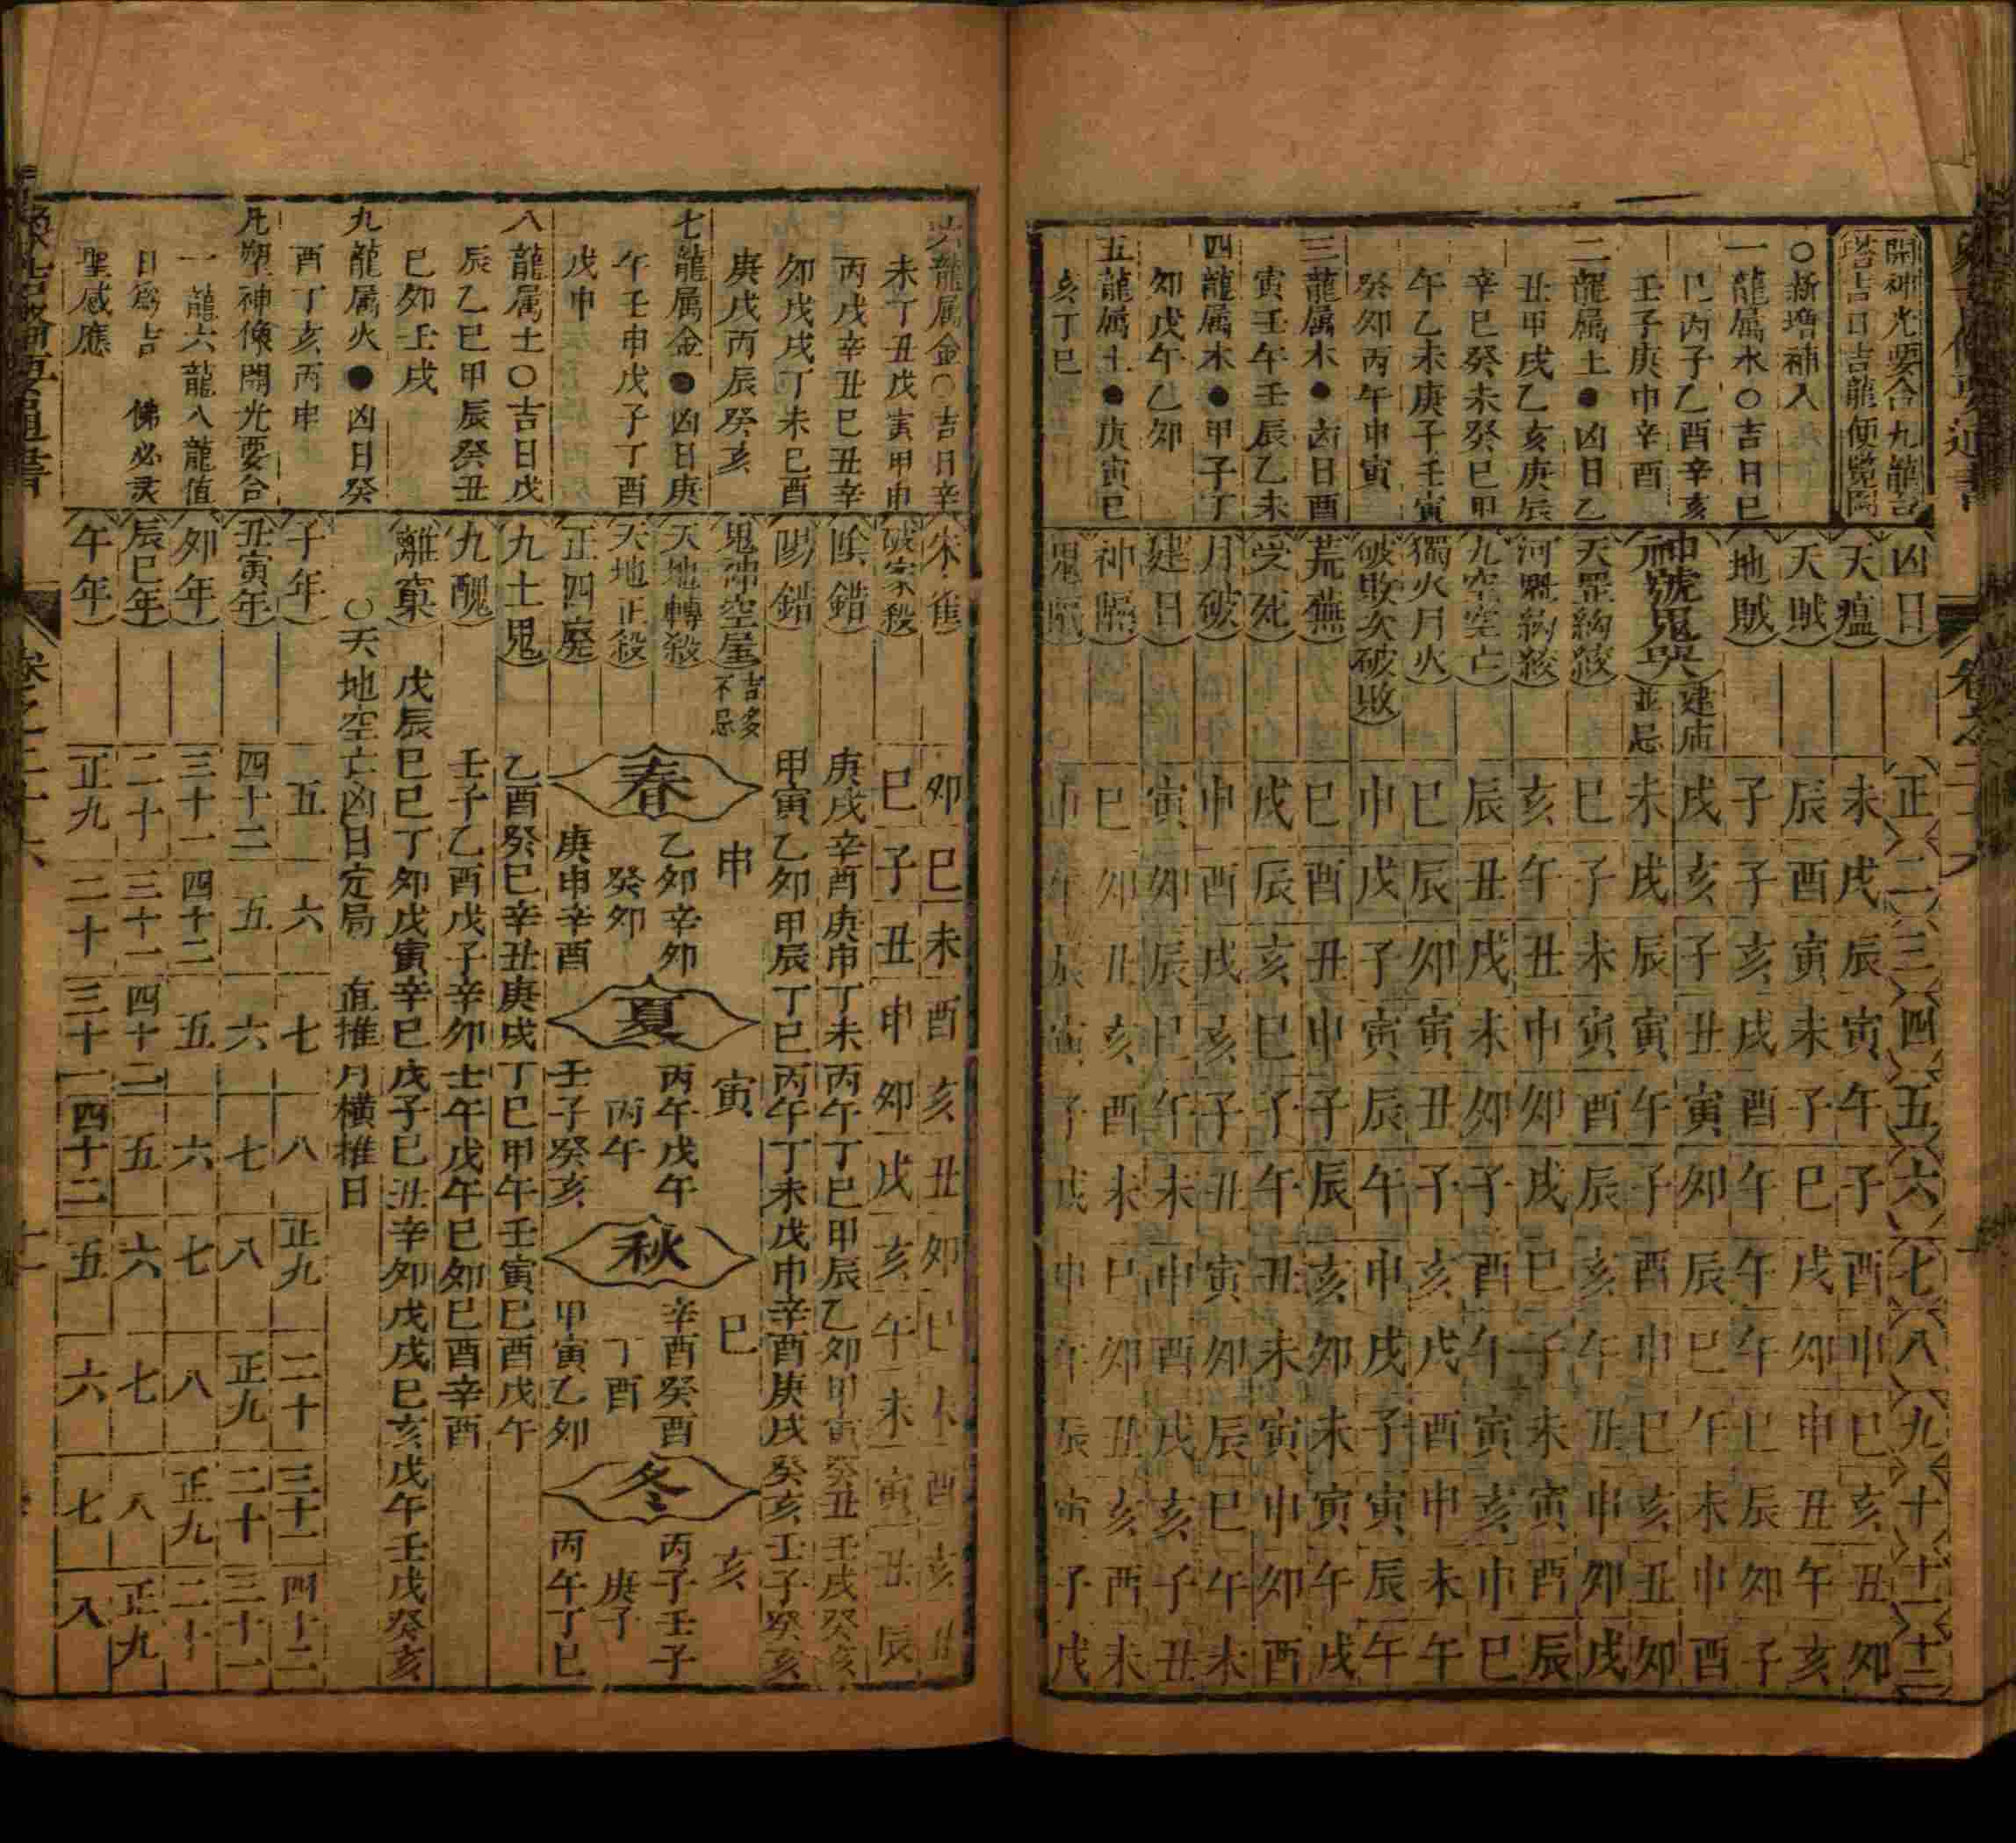 開神光要合九龍吉
塔吉日吉龍便覽図
○新增補入
一龍属水○吉日巳
巳丙子乙酉辛亥
壬子庚申辛酉
二龍属土●凶日乙
丑甲戌乙亥庚辰
辛巳癸未癸巳甲
午乙未庚子壬寅
癸卯丙午甲寅
三龍属木●凶日酉
寅壬午壬辰乙未
四龍属木●甲子丁
卯戊午乙卯
五龍属土●庚寅巳
亥丁巳
凶日 正 二 三 四 五 六 七 八 九 十 十一 十二
天瘟 未 戌 辰 寅 午 子 酉 申 巳 亥 丑 卯
天賊 辰 酉 寅 未 子 巳 戌 卯 申 丑 午 亥
地賊 子 子 亥 戌 酉 午 午 午 巳 辰 卯 子
神號鬼哭 建庙並忌
戌 亥 子 丑 寅 卯 辰 巳 午 未 申 酉
未 戌 辰 寅 午 子 酉 申 巳 亥 丑 卯
天罡絇絞 巳 子 未 寅 酉 辰 亥 午 丑 申 卯 戌
河魁絇絞 亥 午 丑 申 卯 戌 巳 子 未 寅 酉 辰
九空空亡 辰 丑 戌 未 卯 子 酉 午 寅 亥 申 巳
獨火月火 巳 辰 卯 寅 丑 子 亥 戌 酉 申 未 午
破敗次破敗 申 戌 子 寅 辰 午 申 戌 子 寅 辰 午
荒蕪 巳 酉 丑 申 子 辰 亥 卯 未 寅 午 戌
受死 戌 辰 亥 巳 子 午 丑 未 寅 申 卯 酉
月破 申 酉 戌 亥 子 丑 寅 卯 辰 巳 午 未
建日 寅 卯 辰 巳 午 未 申 酉 戌 亥 子 丑
神隔 巳 卯 丑 亥 酉 未 巳 卯 丑 亥 酉 未
鬼隔 申 午 辰 寅 子 戌 申 午 辰 寅 子 戌
六龍属金○吉日辛
未丁丑戊寅甲申
丙戌辛丑巳丑辛
卯戊戌丁未巳酉
庚戌丙辰癸亥
七龍属金●凶日庚
午壬申戊子丁酉
戊申
八龍属土○吉日戊
辰乙巳甲辰癸丑
巳卯壬戌
九龍属火●凶日癸
酉丁亥丙申
凡塑神像開光要合
一龍六龍八龍值
日爲吉 佛必灵
聖感應
朱雀 卯 巳 未 酉 亥 丑 卯 巳 未 酉 亥 丑
破家殺 巳 子 丑 申 卯 戌 亥 午 未 寅 丑 辰
陰錯 庚戌辛酉庚申丁未丙午丁巳甲辰乙卯甲寅癸丑壬戌癸亥
陽錯 甲寅乙卯甲辰丁巳丙午丁未戊申辛酉庚戌癸亥壬子癸亥
鬼神空屋 吉多不忌 申 寅 巳 亥
天地轉殺 春 乙卯辛卯 夏 丙午戊午 秋 辛酉癸酉 冬 丙子壬子
天地正殺 癸卯 丙午 丁酉 庚子
正四廢 庚申辛酉 壬子癸亥 甲寅乙卯 丙午丁巳
九土鬼 乙酉癸巳辛丑庚戌丁巳甲午壬寅巳酉戊午
九醜 壬子乙酉戊子辛卯壬午戊午巳卯巳酉辛酉
離窠 戊辰巳巳丁卯戊寅辛巳戊子巳丑辛卯戊戌巳亥戊午壬戌癸亥
○天地空亡凶日定局 直推月横推日
子年 五 六 七 八 正九 二十 三十一 四十二
丑寅年 四十二 五 六 七 八 正九 二十 三十一
卯年 三十一 四十二 五 六 七 八 正九 二十
辰巳年 二十 三十一 四十二 五 六 七 八 正九
午年 正九 二十 三十一 四十二 五 六 七 八
卷之二十六